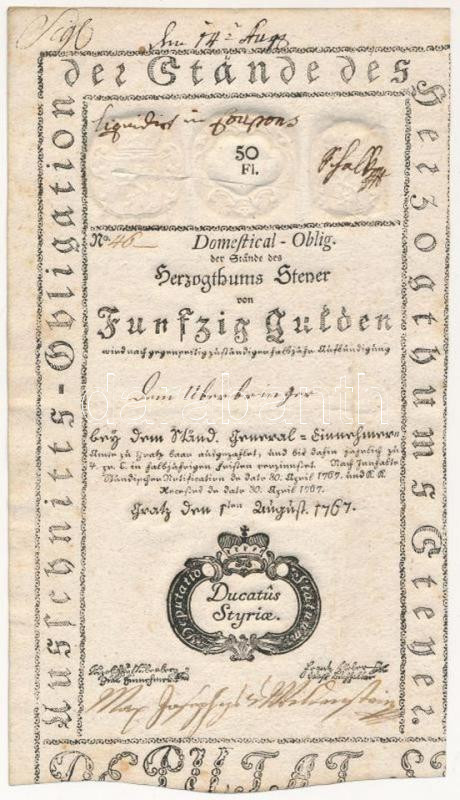 den 14ᵗ Aug
der Stände des
Ausschnitts-Obligation
Herzogthums Steyer.
liquidirt in Coupons
50
Fl.
Nᵒ 46
Domestical-Oblig.
der Stände des
Herzogthums Steyer
von
Funfzig Gulden
wird nach gegenseitig zuständiger halbjähr. Aufkündigung
Dem Überbringer
bey dem Ständ. General-Einnehmer-
Amte zu Gratz baar ausgezahlt, und bis dahin jährlich zu
4. p. C. in halbjährigen Fristen verzinnset. Nach Innhalte
Ständischer Notification da dato 30. April 1767. und K. K.
Recessus da dato 30. April 1767.
Gratz den 1ᵗᵉⁿ August. 1767.
Deputatio Statuum
Ducatûs
Styriæ.
DEPUTAT
darabanth